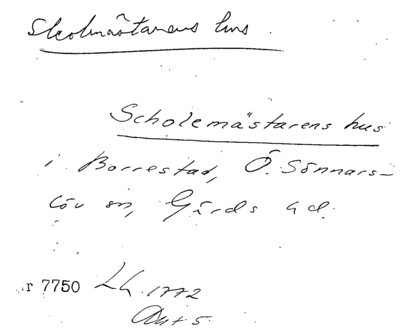 Skolmästarens hus.
Scholemästarens hus
i Borrestad, Ö. Sönnars-
löv sn, Gärds hd.
r 7750 Lh. 1772
Akt 5